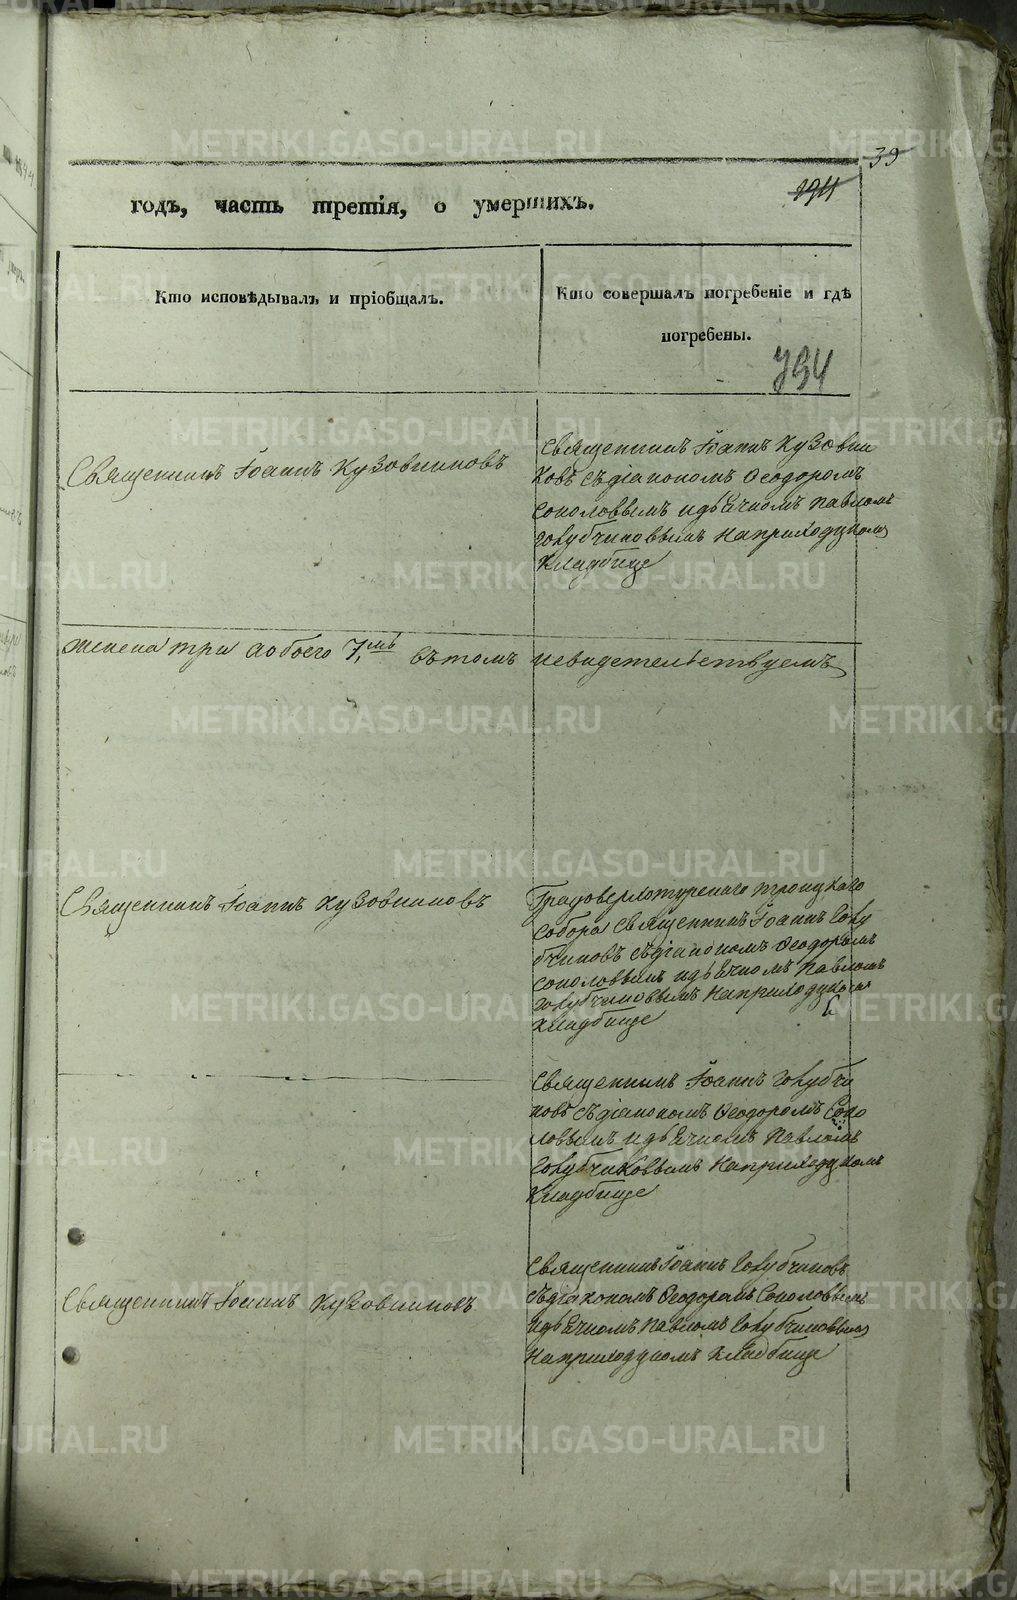 39
194
годъ, часть третія, о умершихъ.
Кто исповѣдывалъ и пріобщалъ.
Кто совершалъ погребеніе и гдѣ
погребены.
794
Священникъ Іоаннъ Кузовниковъ
Священникъ Іоаннъ Кузовни
ковъ съ діакономъ Ѳеодоромъ
Соколовымъ и дьячкомъ Павломъ
Голубчиковымъ на приходскомъ
кладбище
женска три а обоего 7мь въ томъ свидетельствуемъ
Священникъ Іоаннъ Кузовниковъ
Градоверхотурскаго троицкаго
собора Священникъ Іоаннъ Голу
бчиковъ съ діакономъ Ѳеодоромъ
Соколовымъ и дьячкомъ Павломъ
Голубчиковымъ на приходскомъ
кладбище
Священникъ Іоаннъ Голубчи
ковъ съ діакономъ Ѳеодоромъ Соко
ловымъ и дьячкомъ Павломъ
Голубчиковымъ на приходскомъ
кладбище
Священникъ Іоаннъ Кузовниковъ
Священникъ Іоаннъ Голубчиковъ
съ діакономъ Ѳеодоромъ Соколовымъ
и дьячкомъ Павломъ Голубчиковымъ
на приходскомъ кладбище
METRIKI.GASO-URAL.RU